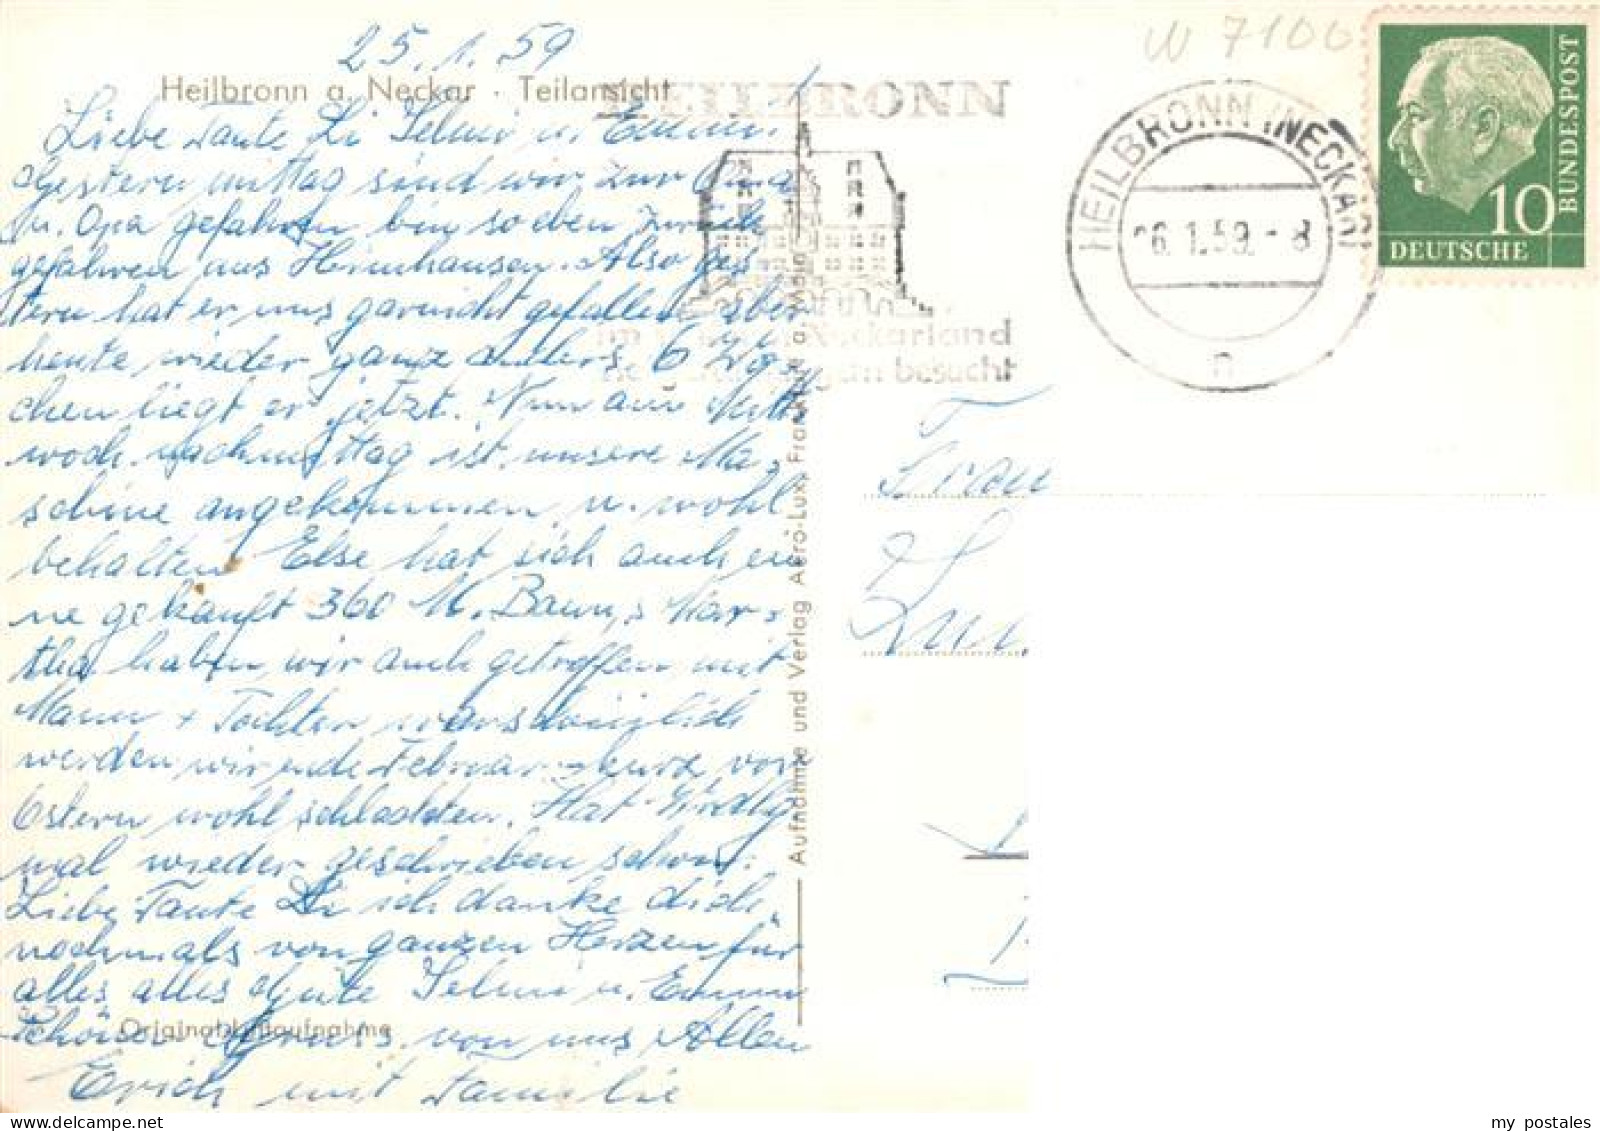 25.1.59
Heilbronn a. Neckar · Teilansicht
Liebe Tante Li Selmi u. Emmi.
Gestern mittag sind wir zur Oma
u. Opa gefahren bin soeben zurück
gefahren aus Heinhausen. Also ges
tern hat er uns garnicht gefallen aber
heute wieder ganz anders 6
chen liegt er jetzt. Nun am Mitt
woch nachmittag ist unsere Ma
schine angekommen u. wohl
behalten Else hat sich auch ei
ne gekauft 360 M. Mar
tha haben wir auch getroffen mit
Mann + Tochter warscheinlich
werden wir ende Februar kurz vor
Ostern wohl schlachten. Hat
mal wieder geschrieben schon.
Liebe Tante Li ich danke dich
nochmals von ganzen Herzen für
alles alles Gute Selmi u. Emmi
Originalluftaufnahme
Schöne Grüss. von uns Allen
Erich mit Familie
Aufnahme und Verlag Aero-Lux, Frankfurt a. Main
HEILBRONN
im Neckarland
gern besucht
W 7100
HEILBRONN (NECKAR)
26.1.59.-8
n
10
DEUTSCHE
BUNDESPOST
Frau
my postales